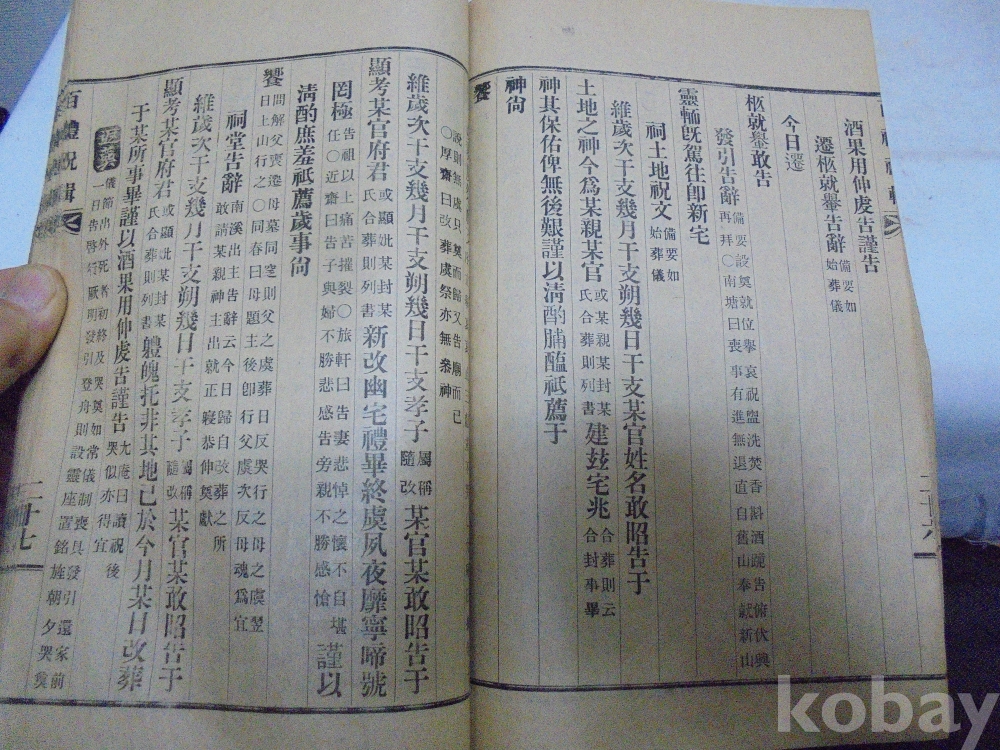 酒果用伸虔告謹告
遷柩就轝告辭 備要如始葬儀
今日遷
柩就轝敢告
發引告辭 備要設奠就位擧哀祝盥洗焚香斟酒跪告俯伏興再拜○南塘曰喪事有進無退直自舊山奉就新山
靈輀旣駕往卽新宅
祠土地祝文 備要如始葬儀
維歲次干支幾月干支朔幾日干支某官姓名敢昭告于
土地之神今爲某親某官 或某親某封某氏合葬則列書 建玆宅兆 合葬則云合封事學
神其保佑俾無後艱謹以淸酌脯醢祗薦于
神尙
饗
○厚齋曰改葬虞祭亦無叅神
維歲次干支幾月干支朔幾日干支孝子 屬稱隨改 某官某敢昭告于
顯考某官府君 或顯妣某封某氏合葬則列書 新改幽宅禮畢終虞夙夜靡寧啼號
罔極 告祖以上痛苦摧裂○旅軒曰告妻悲悼之懷不自堪任○近齋曰告子與婦不勝悲感告旁親不勝感愴 謹以
淸酌庶羞祗薦歲事尙
饗 問解父喪遷母墓同窆則父之虞葬日反哭行之母之虞翌日上山行之○同春曰母題主後卽行父虞次反母魂爲宜
祠堂告辭 南溪出主告辭云今日歸自改葬之所敢請某親神主出就正寢恭伸奠獻
維歲次干支幾月干支朔幾日干支孝子 屬稱隨改 某官某敢昭告于
顯考某官府君 或顯妣某封某氏合葬則列書 體魄托非其地已於今月某日改葬
于某所事畢謹以酒果用伸虔告謹告 尤庵曰讀祝後哭似亦得宜
返葬 儀節出外死者初終及哭奠如常儀制喪具發引還家前一日告啓殯厥明發引登舟則設靈座置銘旌朝夕哭奠
百禮祝輯
二十七
二十六
kobay